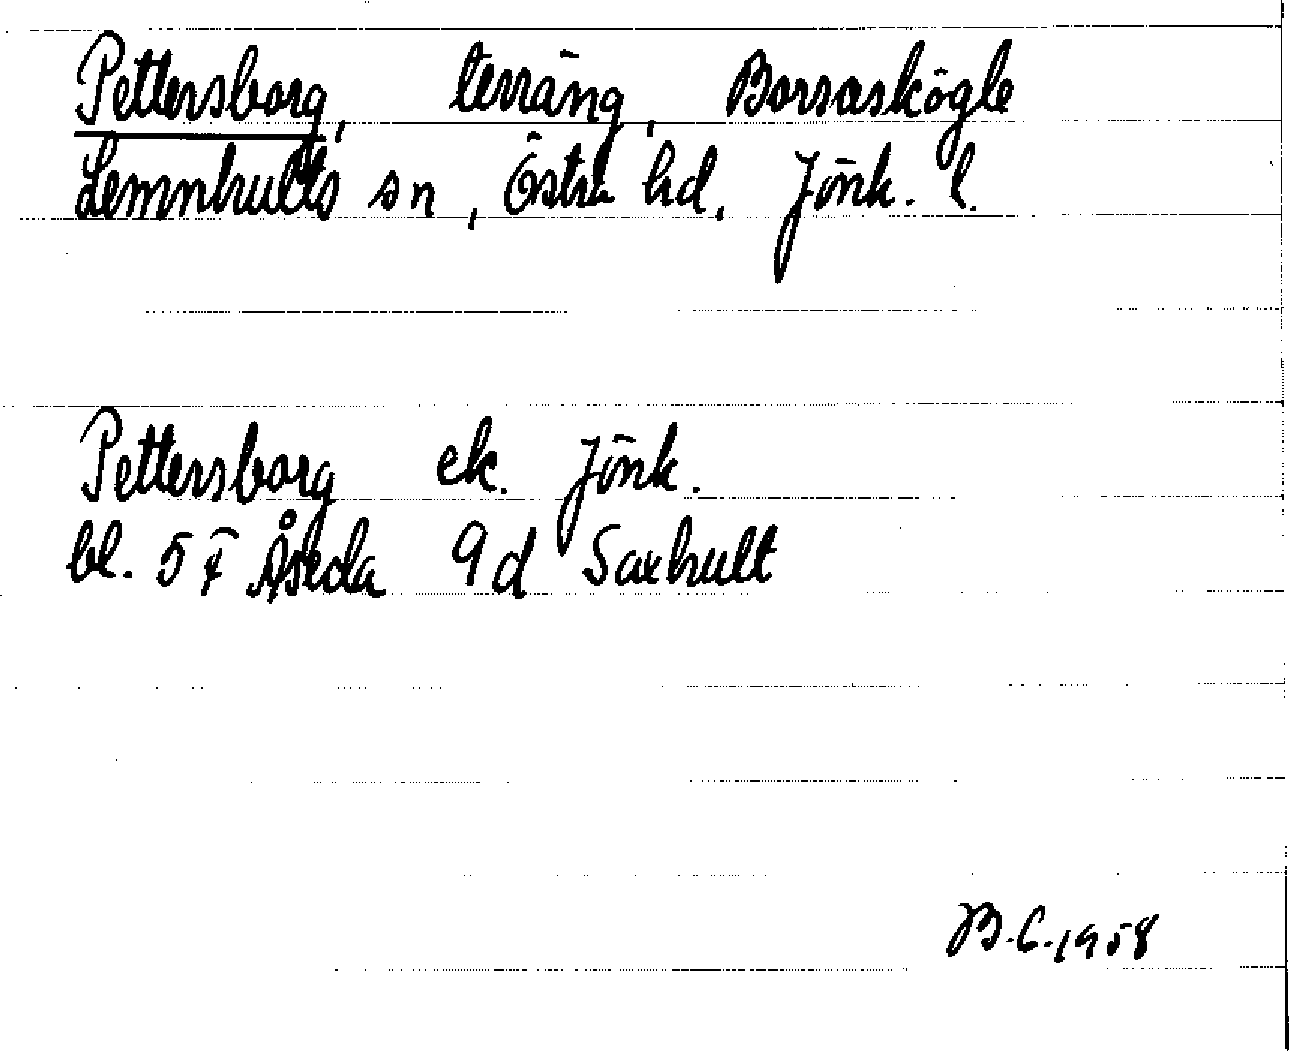 Pettersborg, terräng, Borsaskögle
Lemnhults sn, Östra hd, Jönk. l.
Pettersborg ek. Jönk.
bl. 5 F Åseda 9d Saxhult
B.C. 1958